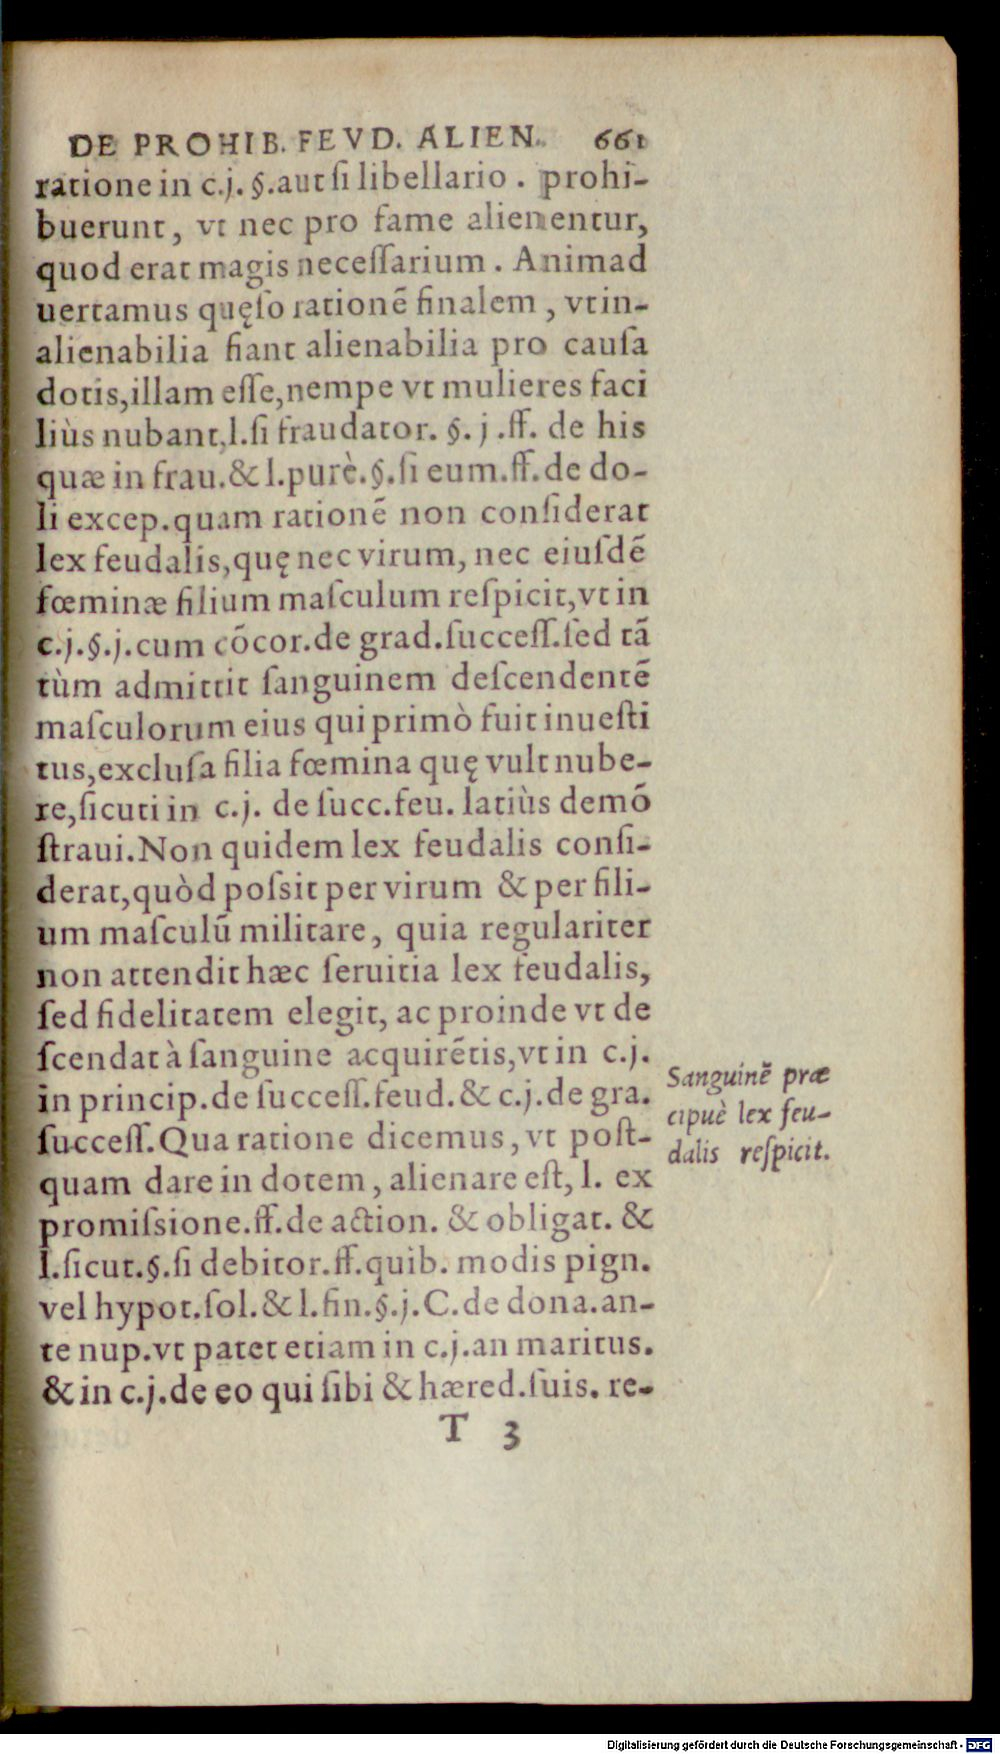 DE PROHIB. FEVD. ALIEN. 661
ratione in c.j. §.aut ſi libellario . prohi-
buerunt, vt nec pro fame alienentur,
quod erat magis neceſſarium . Animad
uertamus quęſo rationē finalem , vt in-
alienabilia fiant alienabilia pro cauſa
dotis,illam eſſe,nempe vt mulieres faci
liùs nubant,l.ſi fraudator. §. j .ff. de his
quæ in frau.& l.purè.§.ſi eum.ff.de do-
li excep.quam rationē non conſiderat
lex feudalis,quę nec virum, nec eiuſdē
fœminæ filium maſculum reſpicit,vt in
c.j.§.j.cum cōcor.de grad.ſucceſſ.ſed tā
tùm admittit ſanguinem deſcendentē
maſculorum eius qui primò fuit inueſti
tus,excluſa filia fœmina quę vult nube-
re,ſicuti in c.j. de ſucc.feu. latiùs demō
ſtraui.Non quidem lex feudalis conſi-
derat,quòd poſsit per virum & per fili-
um maſculū militare, quia regulariter
non attendit hæc ſeruitia lex feudalis,
ſed fidelitatem elegit, ac proinde vt de
ſcendat à ſanguine acquirētis,vt in c.j.
in princip.de ſucceſſ.feud.& c.j.de gra.
ſucceſſ.Qua ratione dicemus, vt poſt-
quam dare in dotem, alienare eſt, l. ex
promiſsione.ff.de action. & obligat. &
l.ſicut.§.ſi debitor.ff.quib. modis pign.
vel hypot.ſol.& l.fin.§.j.C.de dona.an-
te nup.vt patet etiam in c.j.an maritus.
& in c.j.de eo qui ſibi & hæred.ſuis. re-
T 3
Sanguinē præ
cipuè lex feu-
dalis reſpicit.
Digitalisierung gefördert durch die Deutsche Forschungsgemeinschaft - DFG